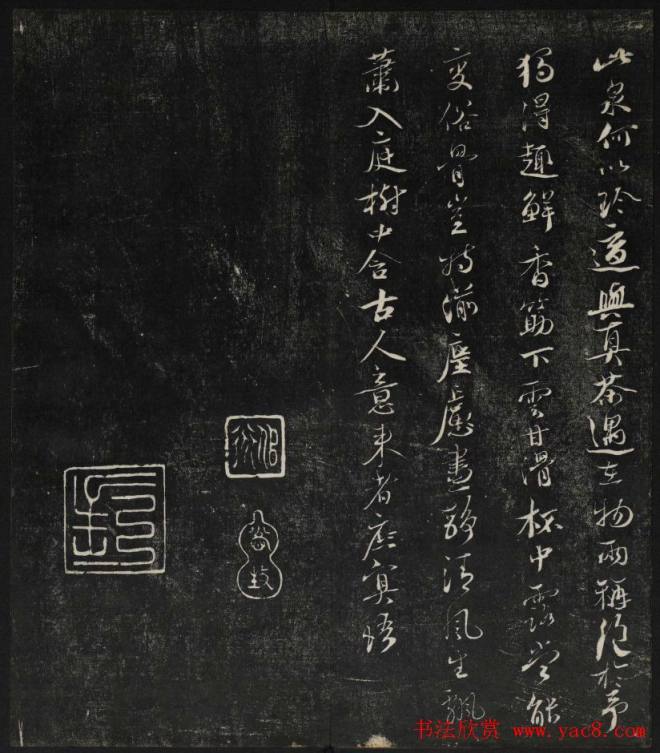 此泉何以珍適與真茶遇在物兩稱絕於予
獨得趣鮮香筯下雲甘滑杯中露當能
變俗骨豈特湔塵慮晝靜清風生飄
蕭入庭樹中含古人意來者庶冥悟
書法欣赏 www.yac8.com